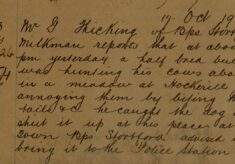 17 Oct 19
Mr G Thicking of Bps Stort
Milkman reports that at abou
pm yesterday a half bred bu
was hunting his cows abo
in a meadow at Hockerill
annoying them by biting
tails &c he caught the dog
shut it up at his place at
Town Bps Stortford advised
bring it to the Police Station